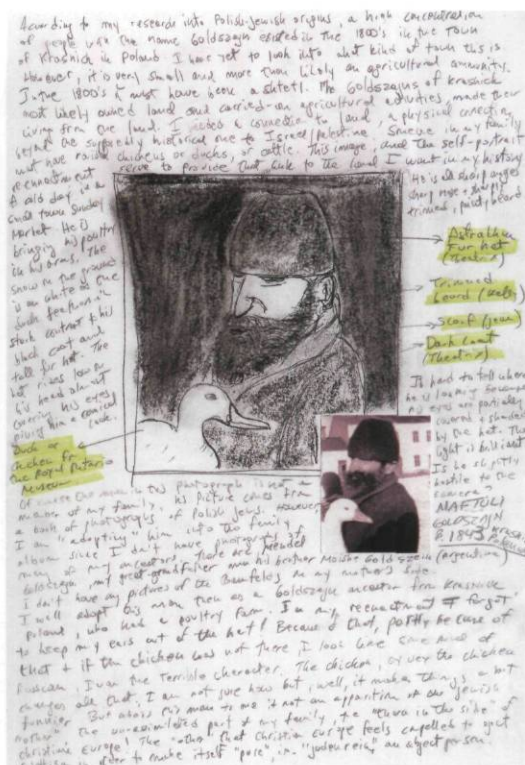 According to my research into Polish-Jewish origins, a high concentration
of people with the name Goldszajn existed in the 1800's in the town
of Krasnick in Poland. I have yet to look into what kind of town this is.
However, it is very small and more than likely an agricultural community.
In the 1800's it must have been a shtetl. The Goldszajns of Krasnick
most likely owned land and carried-on agricultural activities, made their
living from the land. I needed a connection to land, a physical connection
beyond the supposedly historical one to Israel/Palestine. Someone in my family
must have raised chickens or ducks, or cattle. This image, and the self-portrait
re-enactment serve to provide that link to the land I want in my history.
A cold day in a
small town Sunday
market. He is
bringing his poultry
in his arms. The
snow on the ground
is as white as the
duck feathers in
stark contrast to his
black coat and
tall fur hat. The
hat rises low on
his head almost
covering his eyes
giving him a comical
look.
He is all sharp angles
sharp nose + sharply
trimmed, pointy beard
Astrakhan
Fur hat
(Theatrix)
Trimmed
beard
Scarf
Dark Coat
(Theatrix)
Duck or
chicken fr.
the Royal Ontario
Museum.
It hard to tell where
he is looking because
his eyes are partially
covered + shaded
by the hat. The
light is brilliant
Is he slightly
hostile to the
camera
MAFTULI
GOLDSZAJN
B. 1843
Of course the man in this photograph is not a
member of my family. his picture comes from
a book of photographs of Polish Jews. However,
I am "adopting" him into the family
album since I don't have photographs of
many of my ancestors. There are Mendel
Goldszajn, my great grandfather and his brother Moishe Goldszein (argentina)
I don't have any pictures of the on my mother's side.
I will adopt this man then as a Goldszajn ancestor from Krasnick
Poland, who had a poultry farm. In my reenactment I forgot
to keep my ears out of the hat! Because of that, partly because of
that + if the chicken was not there I look like some kind of
Russian, Ivan the Terrible character. The chicken, or yes the chicken
changes all that, I am not sure how but, well, it makes things a bit
funnier. But this man to me is not an apparition of the Jewish
"other" the unassimilated part of my family, the "thorn in the side" of
christian Europe! The "other" that Christian Europe feels compelled to eject
in order to make itself "pure", in "judenrein" an abject person.